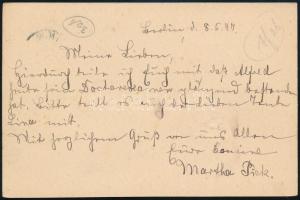 Berlin, d. 8.5.97
Meine Lieben,
Hierdurch teile ich Euch mit daß Alfred
heute sein Doctorexa mer glänzend bestanden
hat. Bitte teilt es auch der lieben Tante
Lina mit.
Mit herzlichem Gruß von uns Allen
Eure Cousine
Martha Pick.